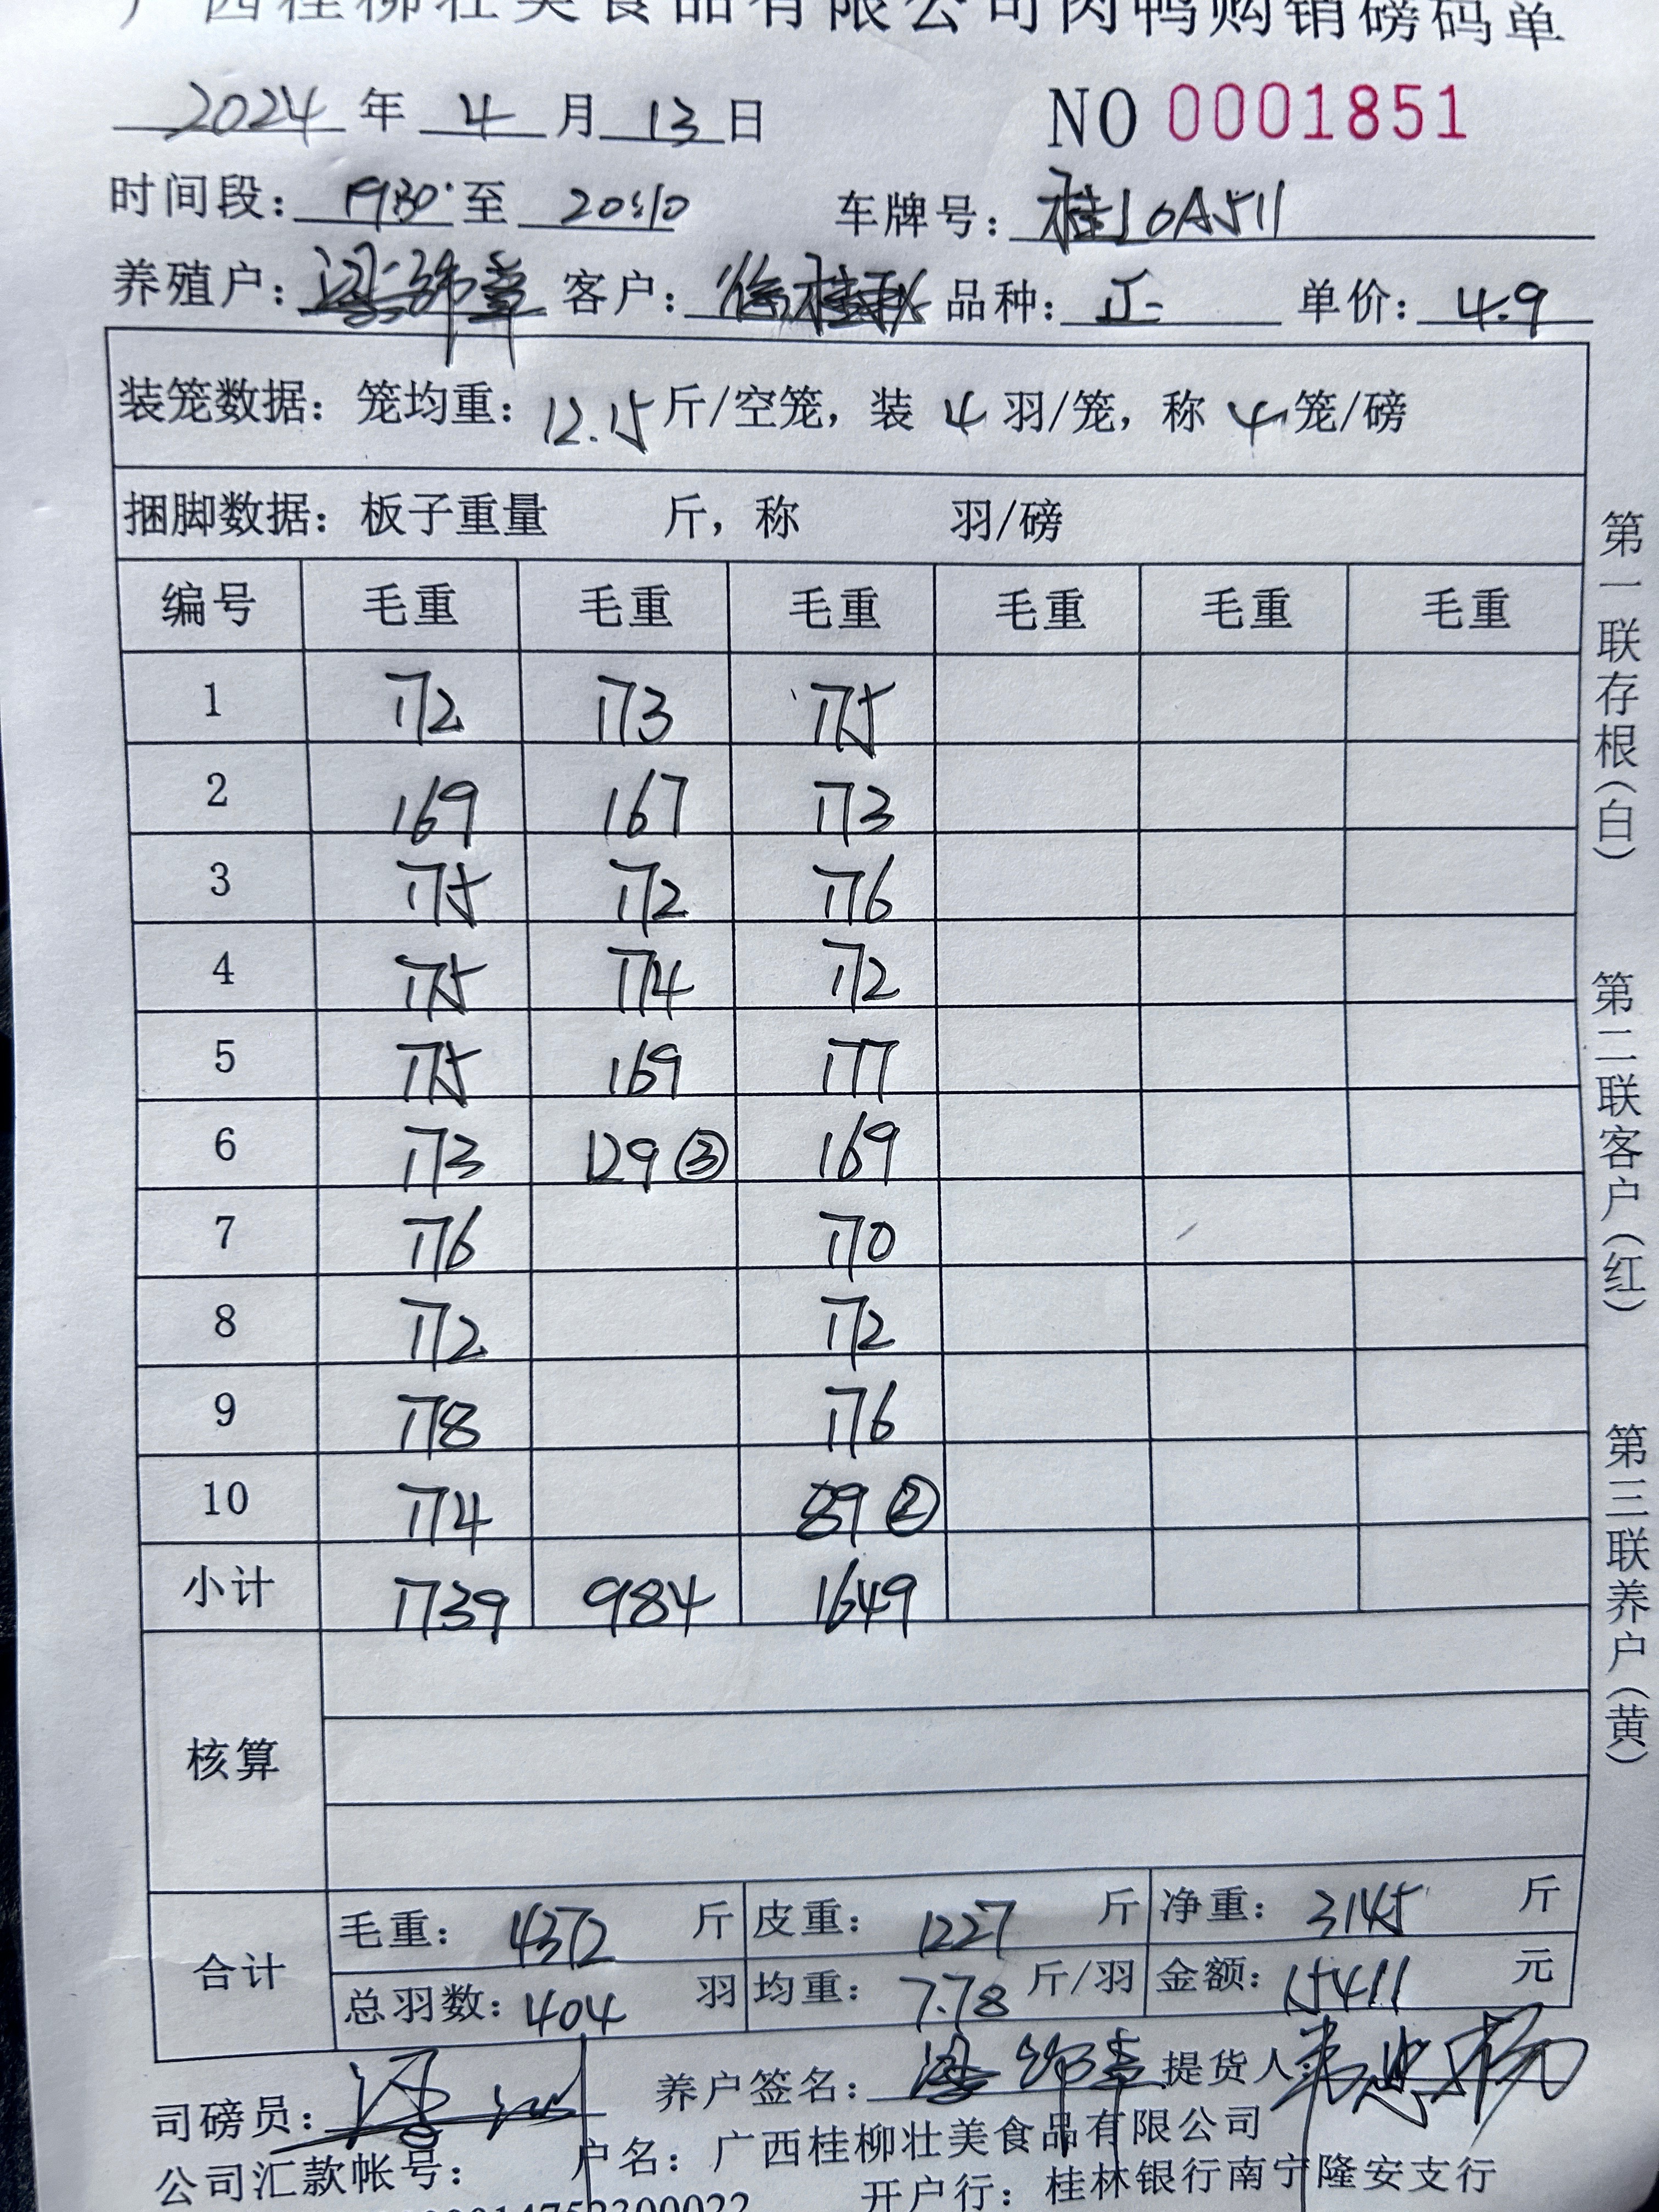 广西桂柳壮美食品有限公司肉鸭购销磅码单
2024 年 4 月 13 日 NO 0001851
时间段: 19:30 至 20:10 车牌号: 桂J0A511
养殖户: 客户: 徐桂秋 品种: 正 单价: 4.9
装笼数据: 笼均重: 12.15 斤/空笼, 装 4 羽/笼, 称 4 笼/磅
捆脚数据: 板子重量 斤, 称 羽/磅
编号 毛重 毛重 毛重 毛重 毛重 毛重
1 172 173 175
2 169 167 173
3 175 172 176
4 175 174 172
5 175 169 177
6 173 129 ③ 169
7 176 170
8 172 172
9 178 176
10 174 89 ②
小计 1739 984 1649
核算
合计 毛重: 4372 斤 皮重: 1227 斤 净重: 3145 斤
总羽数: 404 羽 均重: 7.78 斤/羽 金额: 15411 元
司磅员: 养户签名: 提货人
公司汇款帐号: 户名: 广西桂柳壮美食品有限公司
开户行: 桂林银行南宁隆安支行
第一联存根(白)
第二联客户(红)
第三联养户(黄)